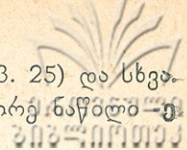 3. 25) და სხვა.
ორე ნაწილი—ე
ბიბლიოთეკ